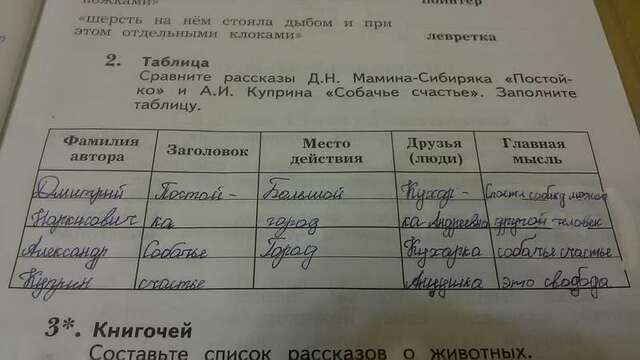 ножками»
пойнтер
«шерсть на нём стояла дыбом и при
этом отдельными клоками»
левретка
2. Таблица
Сравните рассказы Д.Н. Мамина-Сибиряка «Постой-
ко» и А.И. Куприна «Собачье счастье». Заполните
таблицу.
Фамилия автора Заголовок Место действия Друзья (люди) Главная мысль
Дмитрий Постой- Большой Кухар- Спасти собаку может
Наркисович ка город ка Андреевна другой человек
Александр Собачье Город Кухарка собачье счастье
Куприн счастье Аннушка это свобода
3*. Книгочей
Составьте список рассказов о животных.